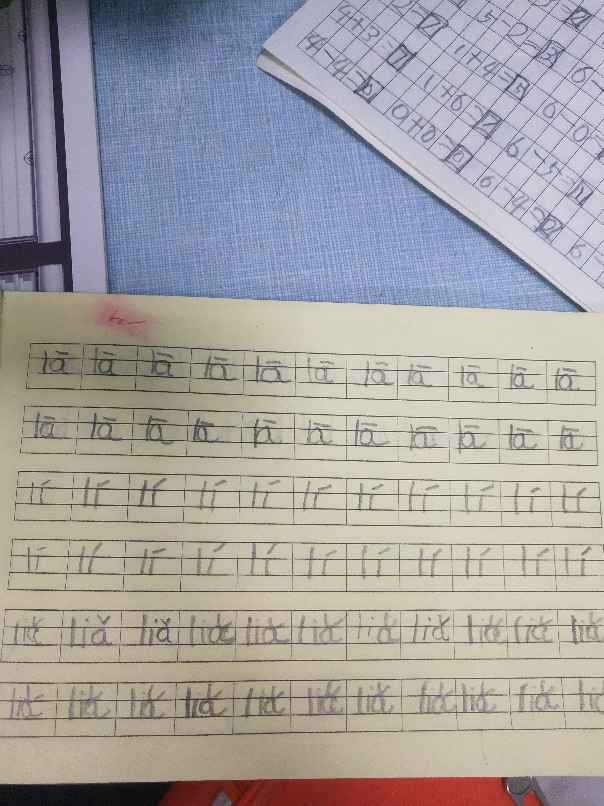 5-2=3 6-
1+4=5 6-0=
4+3=7 1+6=7 6-5=1
4-4=0 0+0=0 6-4=2 6
lā lā lā lā lā lā lā lā lā lā lā
lā lā lā lā lā lā lā lā lā lā lā
lí lí lí lí lí lí lí lí lí lí lí
lí lí lí lí lí lí lí lí lí lí lí
liǎ liǎ liǎ liǎ liǎ liǎ liǎ liǎ liǎ liǎ liǎ
liǎ liǎ liǎ liǎ liǎ liǎ liǎ liǎ liǎ liǎ li